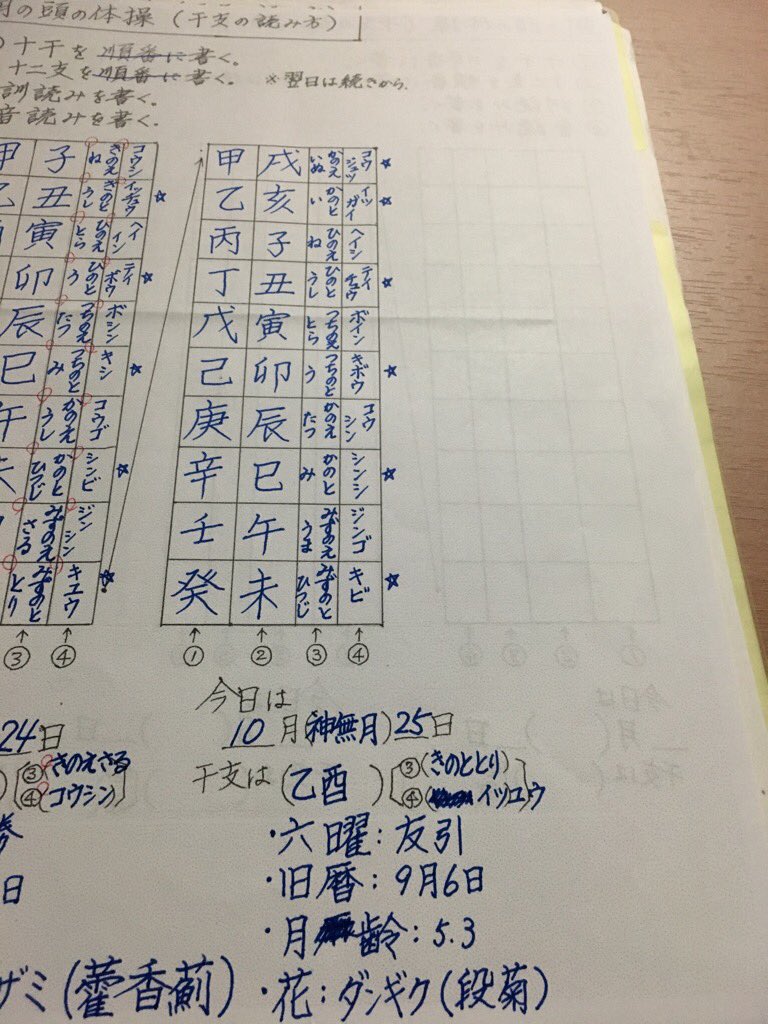 の頭の体操(干支の読み方)
十干を順番に書く。
十二支を順番に書く。 ※翌日は続きから.
訓読みを書く。
音読みを書く.
甲 子 きのえ ね コウシ
丑 きのと うし イッチュウ ☆
寅 ひのえ とら ヘイイン
卯 ひのと う テイボウ ☆
辰 つちのえ たつ ボシン
巳 つちのと み キシ ☆
午 かのえ うし コウゴ
かのと ひつじ シンビ ☆
みずのえ さる ジンシン
みずのと とり キユウ ☆
↑ ↑
③ ④
甲 戌 かのえ いぬ コウジュツ ☆
乙 亥 かのと い イツガイ ☆
丙 子 ひのえ ね ヘイシ
丁 丑 ひのと うし テイチュウ ☆
戊 寅 つちのえ とら ボイン
己 卯 つちのと う キボウ ☆
庚 辰 かのえ たつ コウシン
辛 巳 かのと み シンシ ☆
壬 午 みずのえ うま ジンゴ
癸 未 みずのと ひつじ キビ ☆
↑ ↑ ↑ ↑
① ② ③ ④
24日
③(きのえさる
④(コウシン)
日
ザミ(藿香薊)
今日は
10月(神無月)25日
干支は(乙酉) ③(きのととり)
④(イツユウ
・六曜:友引
・旧暦:9月6日
・月齢:5.3
・花:ダンギク(段菊)